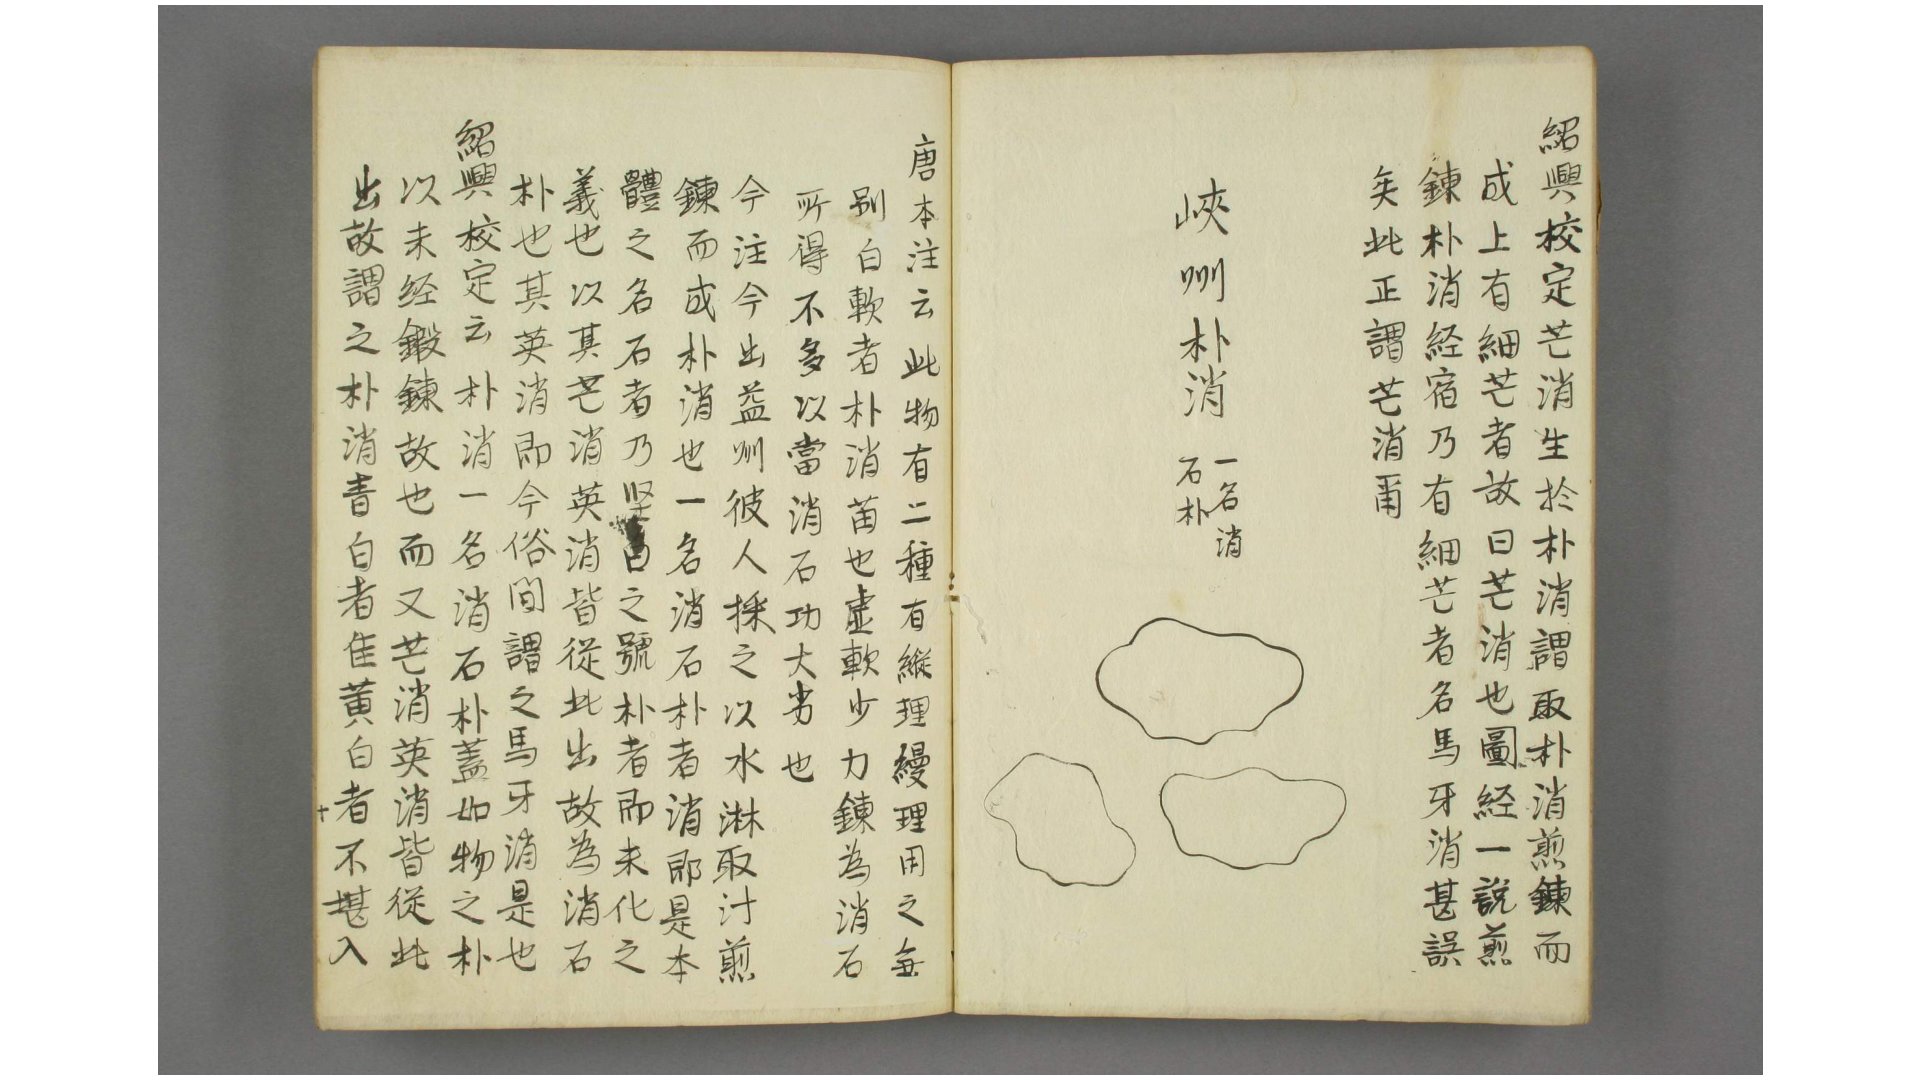 紹興校定芒消生於朴消謂取朴消煎鍊而
成上有細芒者故曰芒消也圖経一説煎
鍊朴消経宿乃有細芒者名馬牙消甚誤
矣此正謂芒消甭
峽州朴消
一名消
石朴
唐本注云此物有二種有縦理縵理用之無
别白軟者朴消苗也虚軟少力鍊為消石
所得不多以當消石功大劣也
今注今出益州彼人採之以水淋取汁煎
鍊而成朴消也一名消石朴者消即是本
體之名石者乃坚白之號朴者即未化之
義也以其芒消英消皆從此出故為消石
朴也其英消即今俗間謂之馬牙消是也
紹興校定云朴消一名消石朴蓋如物之朴
以未経鍛鍊故也而又芒消英消皆從此
出故謂之朴消青白者佳黄白者不堪入